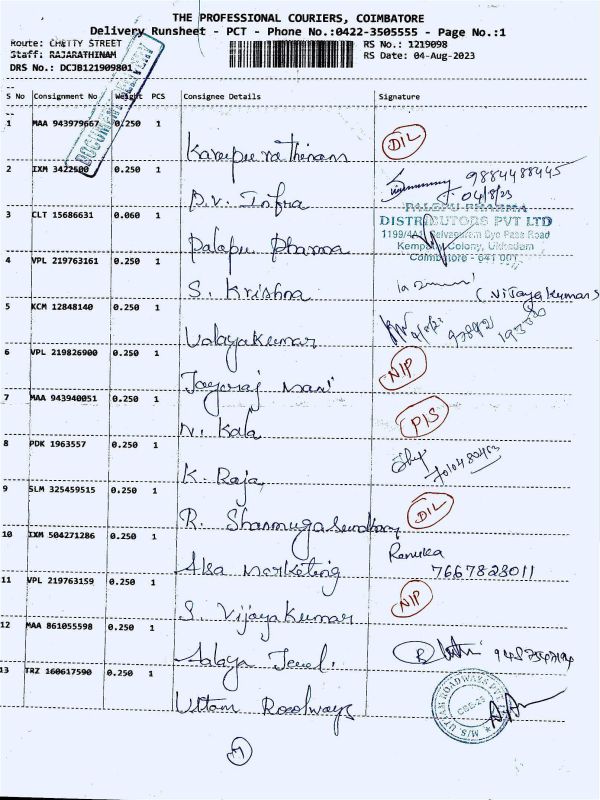 THE PROFESSIONAL COURIERS, COIMBATORE
Delivery Runsheet - PCT - Phone No.:0422-3505555 - Page No.:1
Route: CHETTY STREET
RS No.: 1219098
Staff: RAJARATHINAM
RS Date: 04-Aug-2023
DRS No.: DCJB121909801
S No Consignment No Weight PCS Consignee Details Signature
1 MAA 943979667 0.250 1 DIL
2 IXM 3422500 0.250 1 9884488445
04/8/23
B.V. Infra
3 CLT 15686631 0.060 1 PALEPU PHARMA
DISTRIBUTORS PVT LTD
Colony, Ukkadam
Coimbatore - 641 001
Palapu Pharma
4 VPL 219763161 0.250 1
S. Krishna (Vijayakumar S
5 KCM 12848140 0.250 1
6 VPL 219826900 0.250 1 NIP
Jayaraj Mani
7 MAA 943940051 0.250 1 PIS
N. Kala
8 PDK 1963557 0.250 1
K. Raja
9 SLM 325459515 0.250 1 DIL
R. Shanmugasundaram
10 IXM 504271286 0.250 1 Renuka
7667823011
Aka Marketing
11 VPL 219763159 0.250 1 NIP
S. Vijayakumar
12 MAA 861055998 0.250 1
13 TRZ 160617590 0.250 1 M/S. UTTAM ROADWAYS PVT
CBE-25
Uttam Roadways